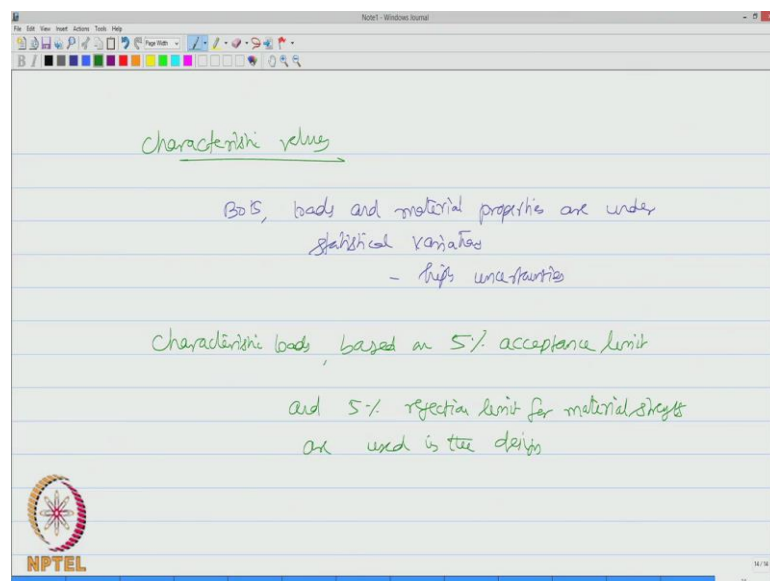 Note1 - Windows Journal
File Edit View Insert Actions Tools Help
Page Width
B I
Characteristic values
Both, loads and material properties are under
statistical variation
- high uncertainties
Characteristic loads, based on 5% acceptance limit
and 5% rejection limit for material strength
are used in the design
NPTEL
14 / 14